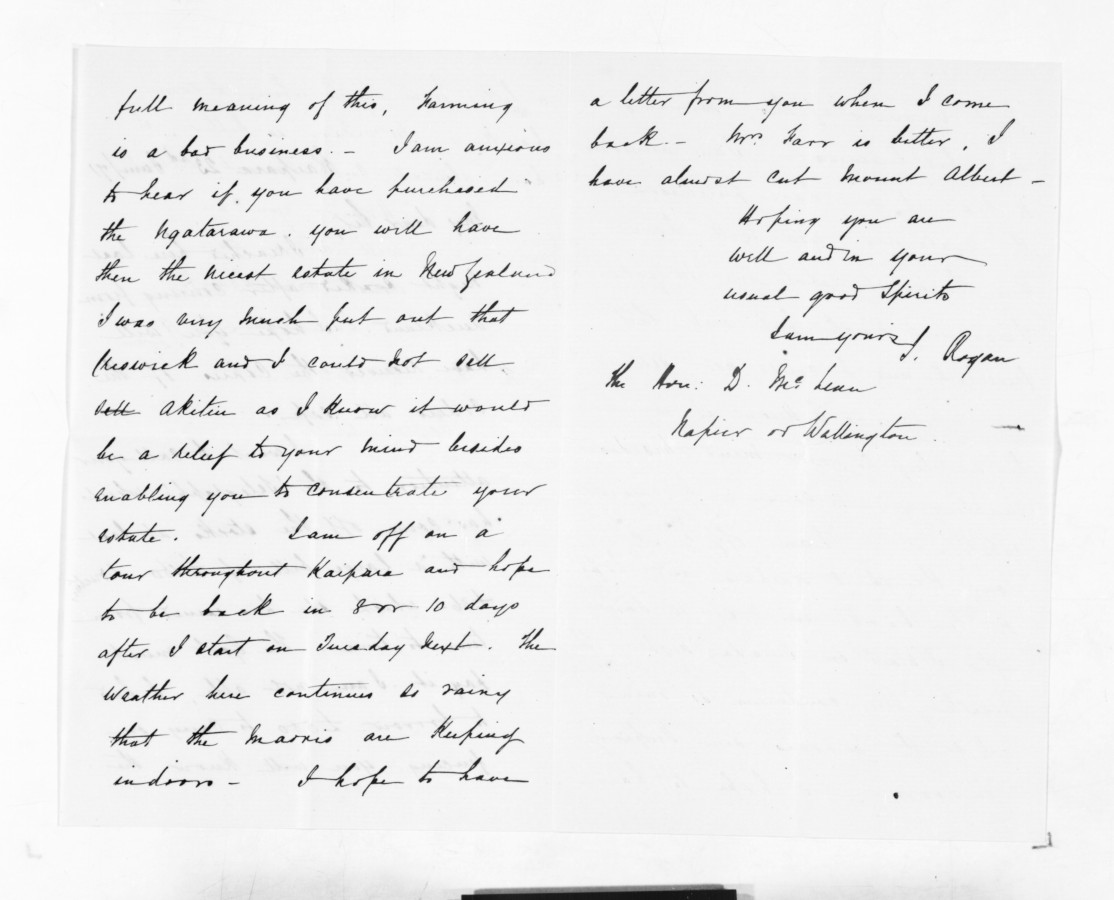 full meaning of this, Farming
is a bad business. - I am anxious
to hear if you have purchased
the Ngatarawa. you will have
then the nicest estate in New Zealand
I was very much put out that
Creswick and I could not sell
sell Akitiu as I know it would
be a relief to your mind besides
enabling you to consentrate your
estate. I am off on a
tour throughout Kaipara and hope
to be back in 8 or 10 days
after I start on Tuesday next. The
weather here continues so rainy
that the Maoris are Keeping
indoors - I hope to have
a letter from you when I come
back. - Mrs Farr is better, I
have almost cut Mount Albert -
Hoping you are
well and in your
usual good Spirits
I am yours J. Rogan
The Hon: D. McLean
Napier or Wellington.